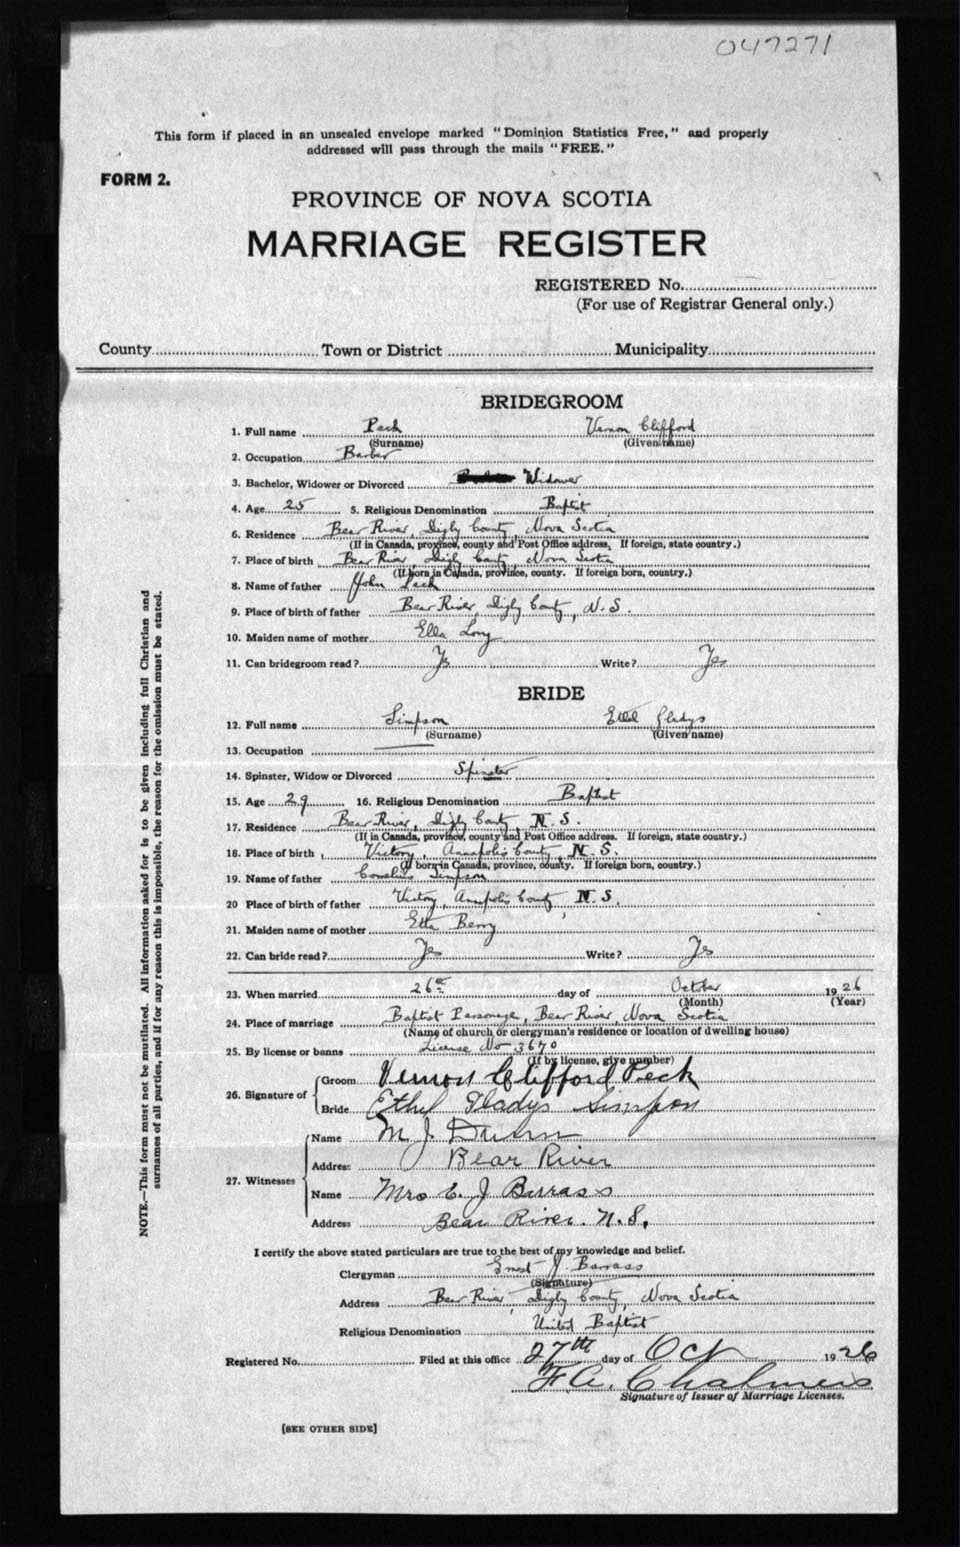 047271
This form if placed in an unsealed envelope marked "Dominion Statistics Free," and properly
addressed will pass through the mails "FREE."
FORM 2.
PROVINCE OF NOVA SCOTIA
MARRIAGE REGISTER
REGISTERED No.
(For use of Registrar General only.)
County Town or District Municipality
BRIDEGROOM
1. Full name Peck Vernon Clifford
(Surname) (Given name)
2. Occupation Barber
3. Bachelor, Widower or Divorced Widower
4. Age 25 5. Religious Denomination Baptist
6. Residence Bear River, Digby County, Nova Scotia
(If in Canada, province, county and Post Office address. If foreign, state country.)
7. Place of birth Bear River, Digby County Nova Scotia
(If born in Canada, province, county. If foreign born, country.)
8. Name of father John Peck
9. Place of birth of father Bear River, Digby County, N.S.
10. Maiden name of mother Ella Long
11. Can bridegroom read? Yes Write? Yes
BRIDE
12. Full name Simpson Ethel Gladys
(Surname) (Given name)
13. Occupation
14. Spinster, Widow or Divorced Spinster
15. Age 29 16. Religious Denomination Baptist
17. Residence Bear River, Digby County N.S.
(If in Canada, province, county and Post Office address. If foreign, state country.)
18. Place of birth Victory, Annapolis County, N.S.
(If born in Canada, province, county. If foreign born, country.)
19. Name of father Cornelius Simpson
20 Place of birth of father Victory, Annapolis County, N.S.
21. Maiden name of mother Etta Berry
22. Can bride read? Yes Write? Yes
23. When married 26th day of October 1926
(Month) (Year)
24. Place of marriage Baptist Parsonage, Bear River Nova Scotia
(Name of church or clergyman's residence or location of dwelling house)
25. By license or banns License No 3670
(If by license, give number)
26. Signature of Groom Vernon Clifford Peck
Bride Ethel Gladys Simpson
27. Witnesses Name M. J. Dunn
Address Bear River
Name Mrs E. J Barrass
Address Bear River. N.S.
I certify the above stated particulars are true to the best of my knowledge and belief.
Clergyman Ernest J. Barrass
(Signature)
Address Bear River, Digby County, Nova Scotia
Religious Denomination United Baptist
Registered No. Filed at this office 27th day of Oct 1926
F. A. Chalmers
Signature of Issuer of Marriage Licenses.
[SEE OTHER SIDE]
NOTE.—This form must not be mutilated. All information asked for is to be given including full Christian and
surnames of all parties, and if for any reason this is impossible, the reason for the omission must be stated.